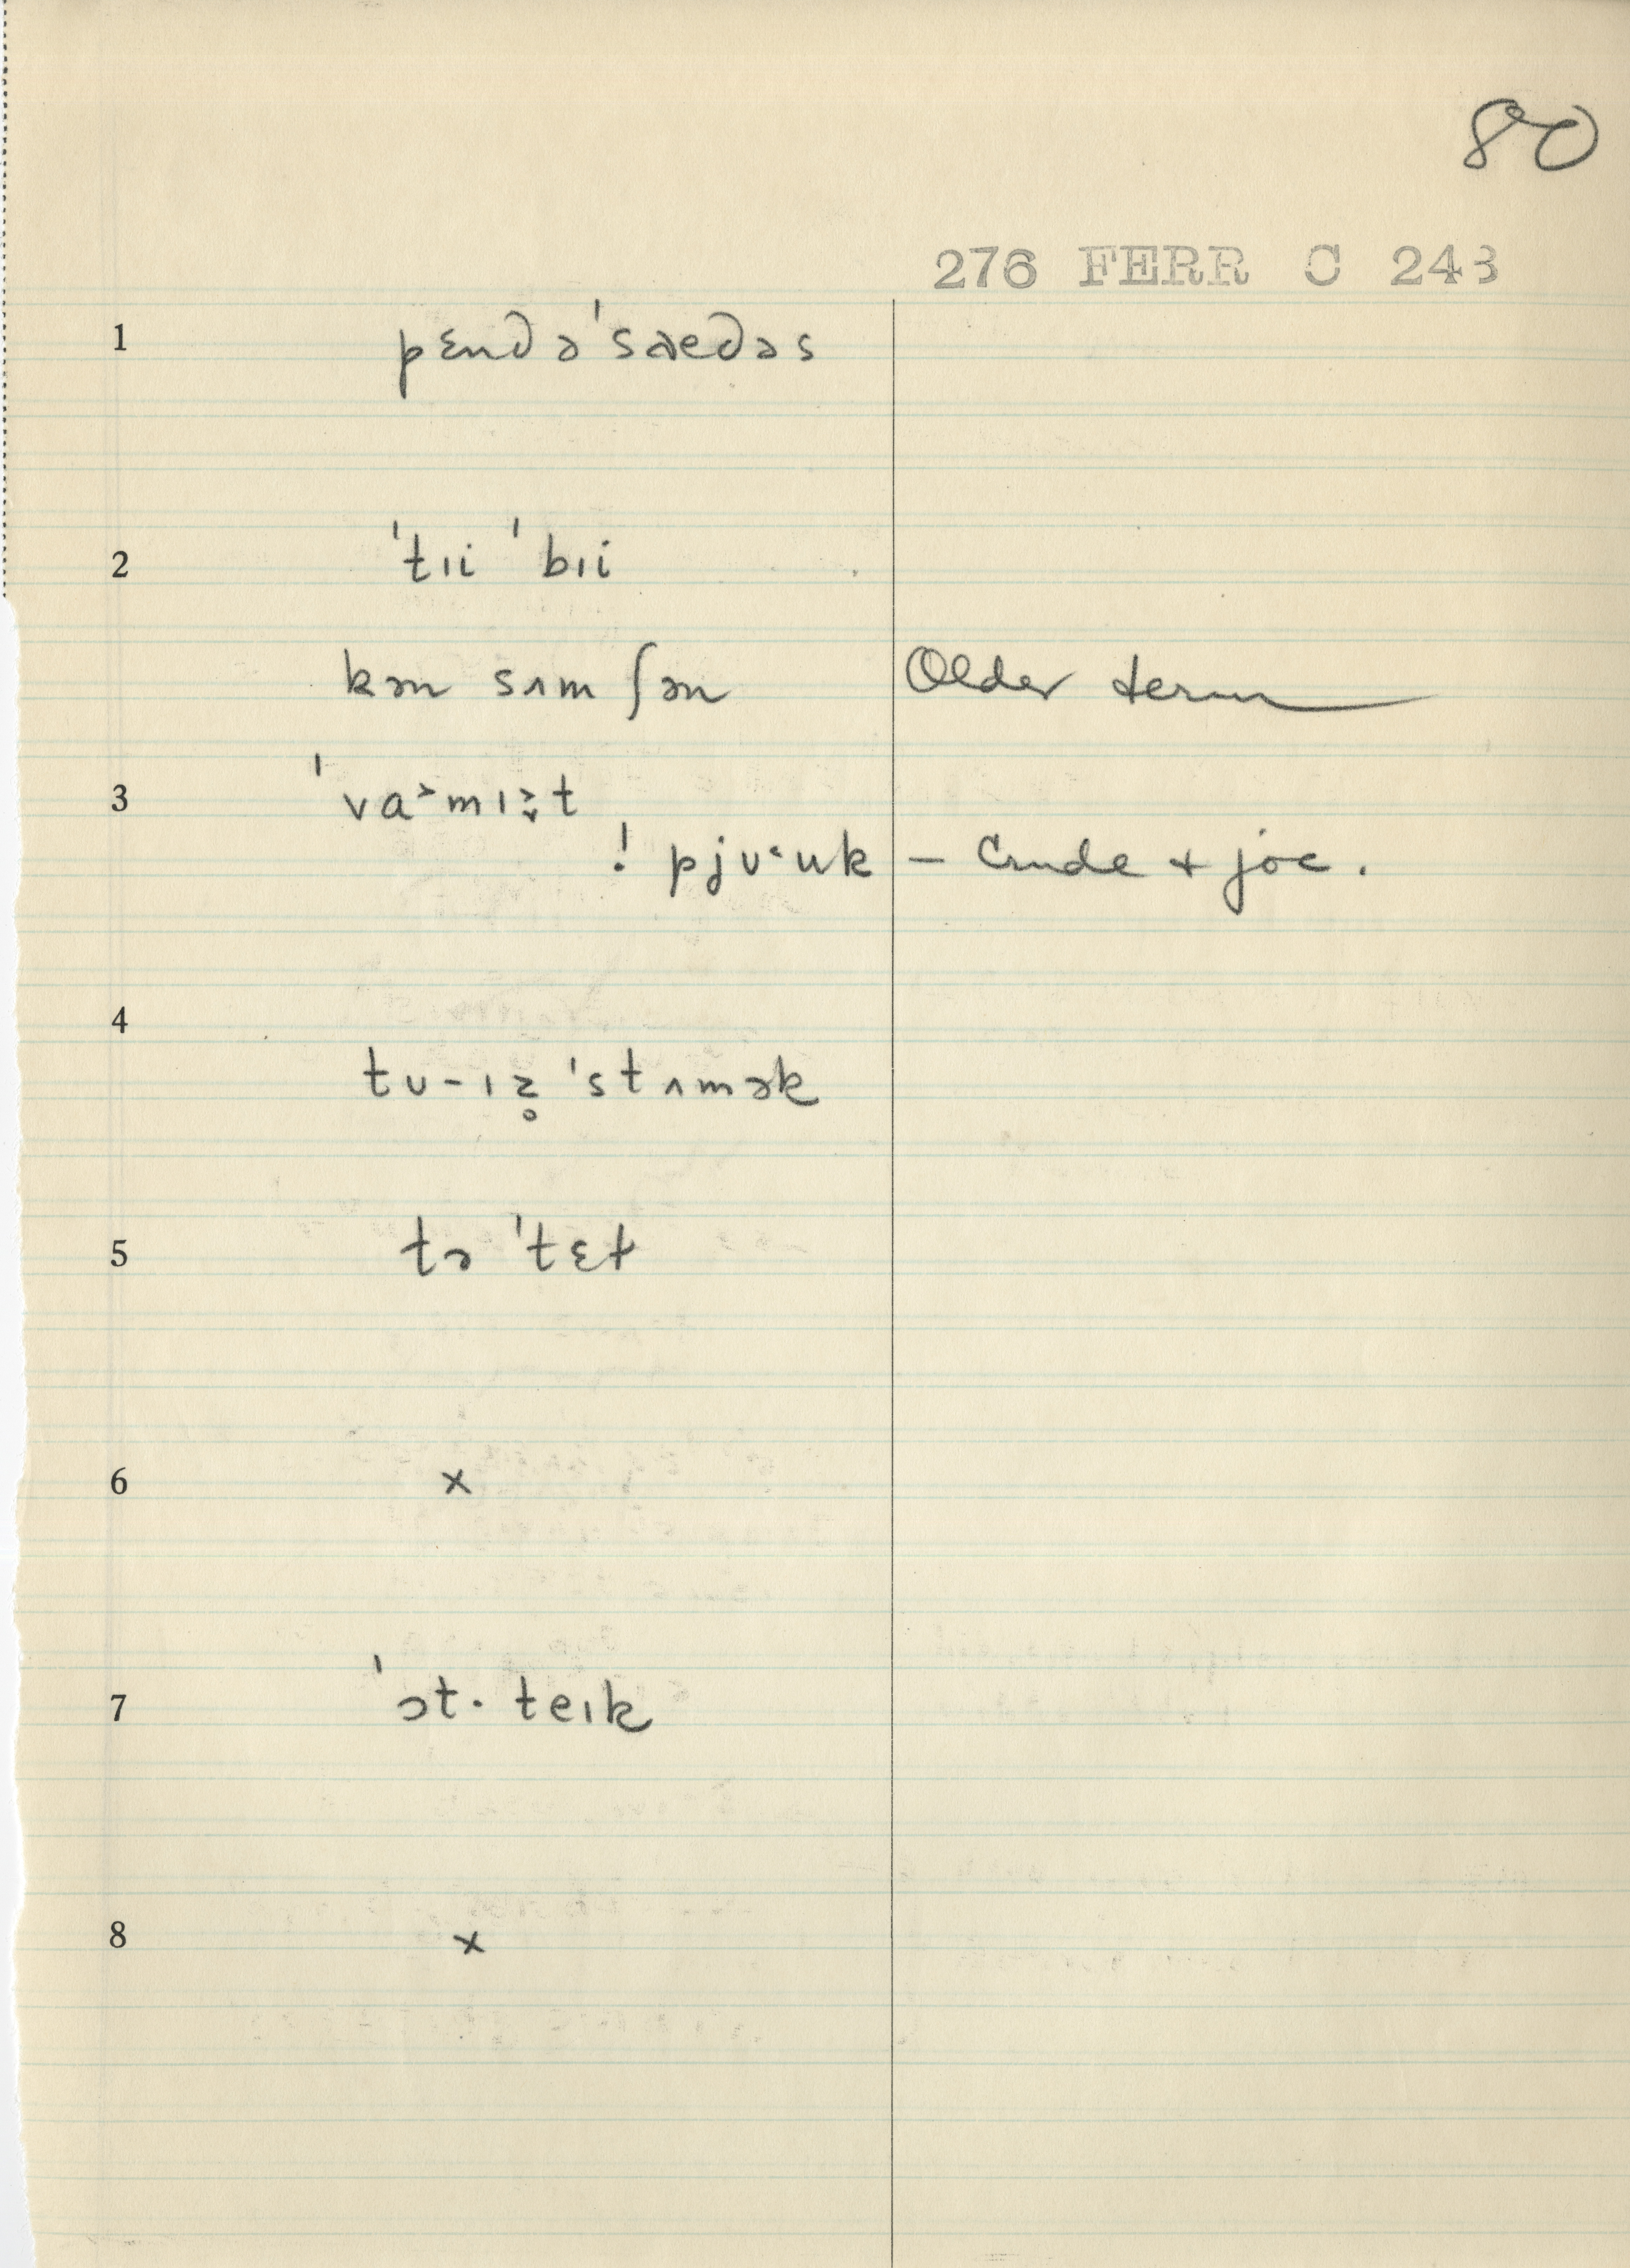 80
276 FERR C 243
1 pɛndə'saedəs
2 'tɪi 'bɪi
kən sʌm ʃən Older term
3 'va˃mɪt
! pjʊ˂uk – Crude + joc.
4
tʊ-ɪz̥ 'stʌmək
5 tə 'tɛt
6 x
7 'ət· teɪk
8 x